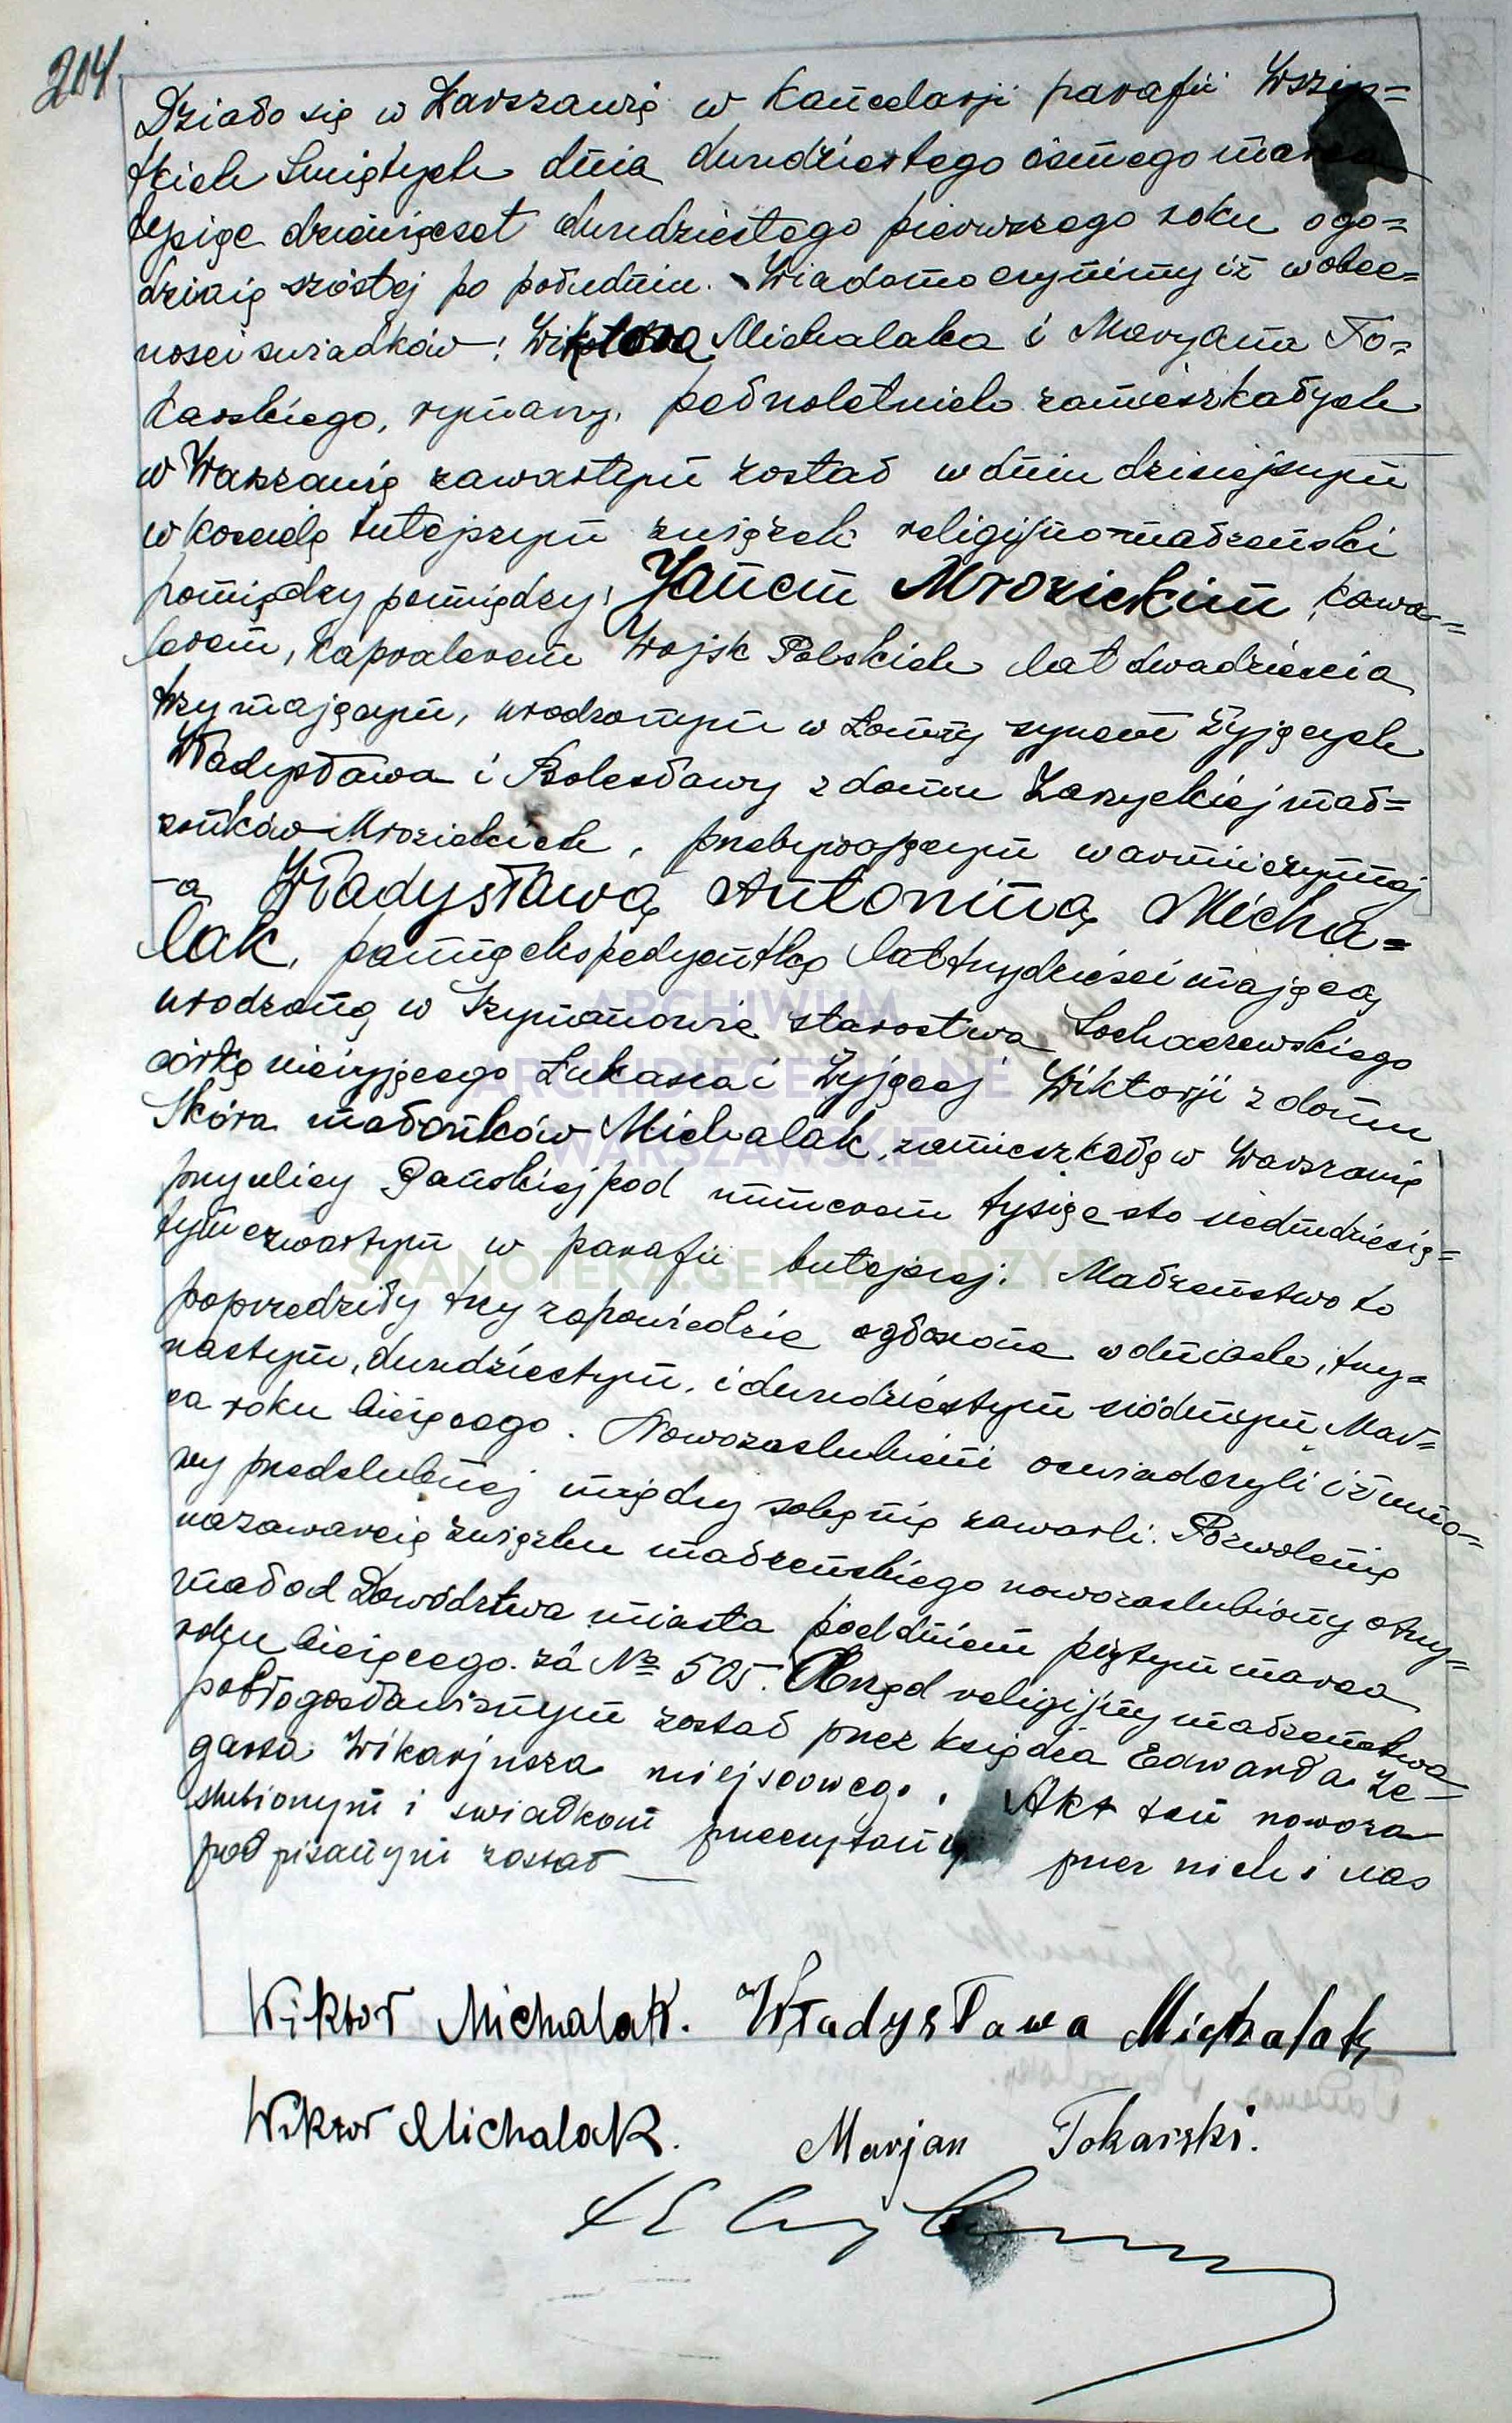 204
Działo się w Warszawie w Kancelarji parafii Wszys=
tkich Swiętych dnia dwudziestego osmego marca
tysiąc dziewięcset dwudziestego pierwszego roku o go=
dzinie szóstej po południu. Wiadomo czynimy iż w obec=
nosci swiadków: Wiktora Michalaka i Maryana To=
karskiego, pełnoletnich zamieszkałych
w Warszawie zawartym został w dniu dzisiejszym
w kosciele tutejszym związek religijno-małżenski
pomiędzy pomiędzy: Janem Mrozickim, kawa=
lerem, kapralerem Wojsk Polskich lat dwadziescia
trzy mającym, urodzonym w Łomży synem żyjących
Władysława i Bolesławy z domu małż=
żonków Mrozickich, przebywającym w armii czynnej
-a Władysławą Antoniną Micha=
lak, panną ekspedyentką lat trzydziesci mającą
urodzoną w Szymanowie starostwa Sochaczewskiego
córką nieżyjącego Łukasza i żyjącej Wiktorji z domu
Skóra małżonków Michalak, zamieszkałą w Warszawie
przy ulicy Pańskiej pod numerem tysiąc sto siedmdziesią=
tym czwartym w parafii tutejszej. Małżeństwo to
poprzedziły trzy zapowiedzie ogłoszone w dniach, trzy=
nastym, dwudziestym, i dwudziestym siódmym Mar=
ca roku bieżącego. Nowozaslubieni oswiadczyli iż umo=
wy przedslubnej między sobą nie zawarli. Pozwolenie
na zawarcie związku małżeńskiego nowozaslubiony otrzy=
mał od Dowództwa miasta pod dniem piątym marca
roku bieżącego za № 505. Obrzęd religijny małżeństwa
pobłogosławionym został przez księdza Edwarda Że-
garsa Wikarjusza miejscowego. Akt ten nowoza
slubionym i swiadkom przeczytany przez nich i nas
podpisanym został —
Wiktor Michalak. Władysława Michalak
Wiktor Michalak. Marjan Tokarski.
ARCHIWUM
ARCHIDIECEZJALNE
WARSZAWSKIE
SKANOTEKA.GENEALODZY.PL